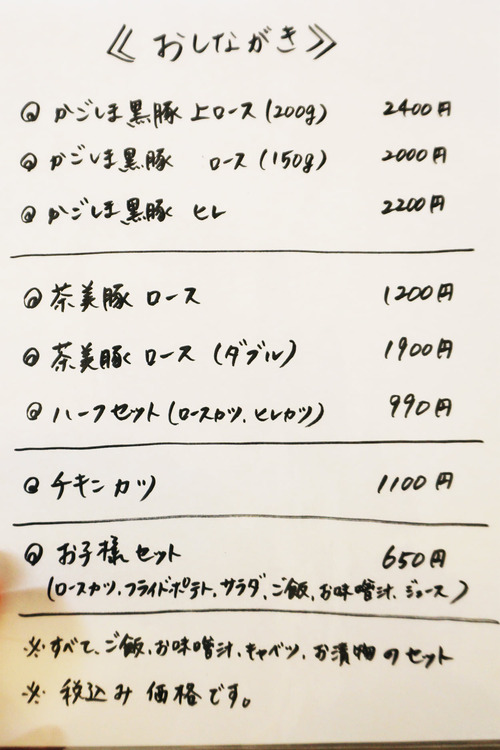 《 おしながき 》
◎ かごしま黒豚 上ロース (200g) 2400円
◎ かごしま黒豚 ロース (150g) 2000円
◎ かごしま黒豚 ヒレ 2200円
◎ 茶美豚 ロース 1200円
◎ 茶美豚 ロース (ダブル) 1900円
◎ ハーフセット (ロースカツ、ヒレカツ) 990円
◎ チキンカツ 1100円
◎ お子様セット 650円
(ロースカツ、フライドポテト、サラダ、ご飯、お味噌汁、ジュース)
※すべて、ご飯、お味噌汁、キャベツ、お漬物のセット
※ 税込み価格です。